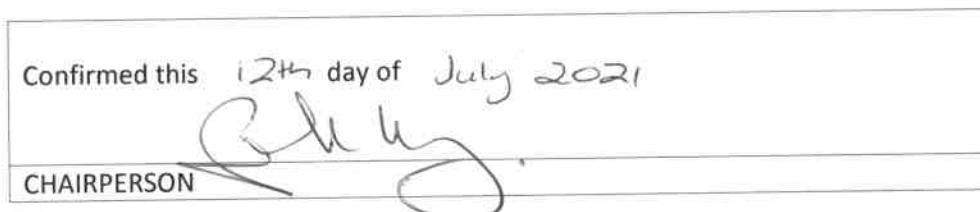 Confirmed this 12th day of July 2021
CHAIRPERSON